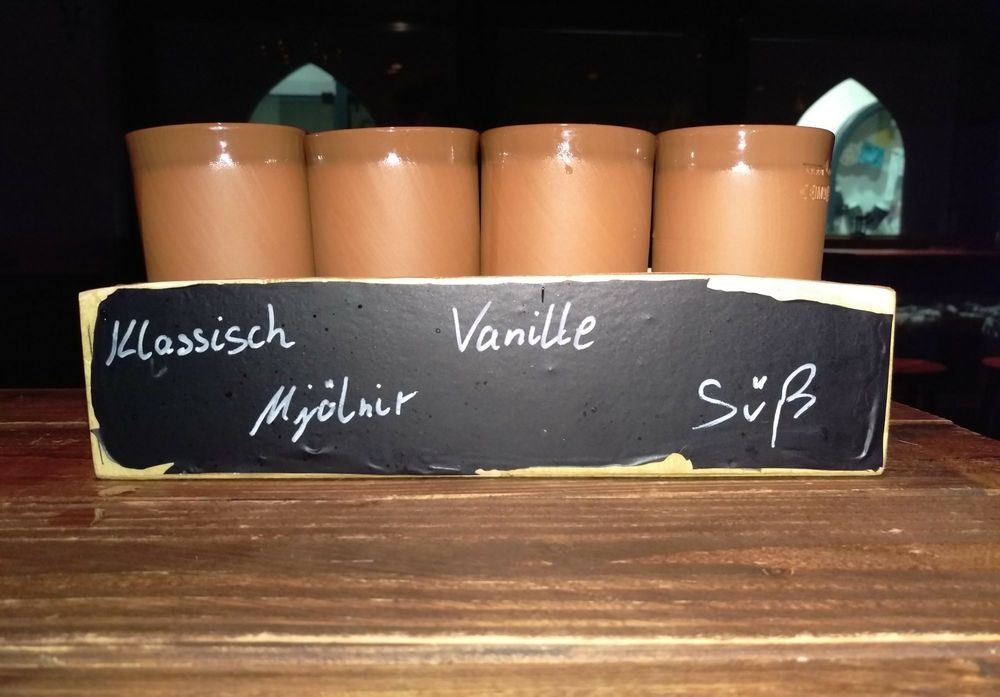 Klassisch
Mjölnir
Vanille
Süß